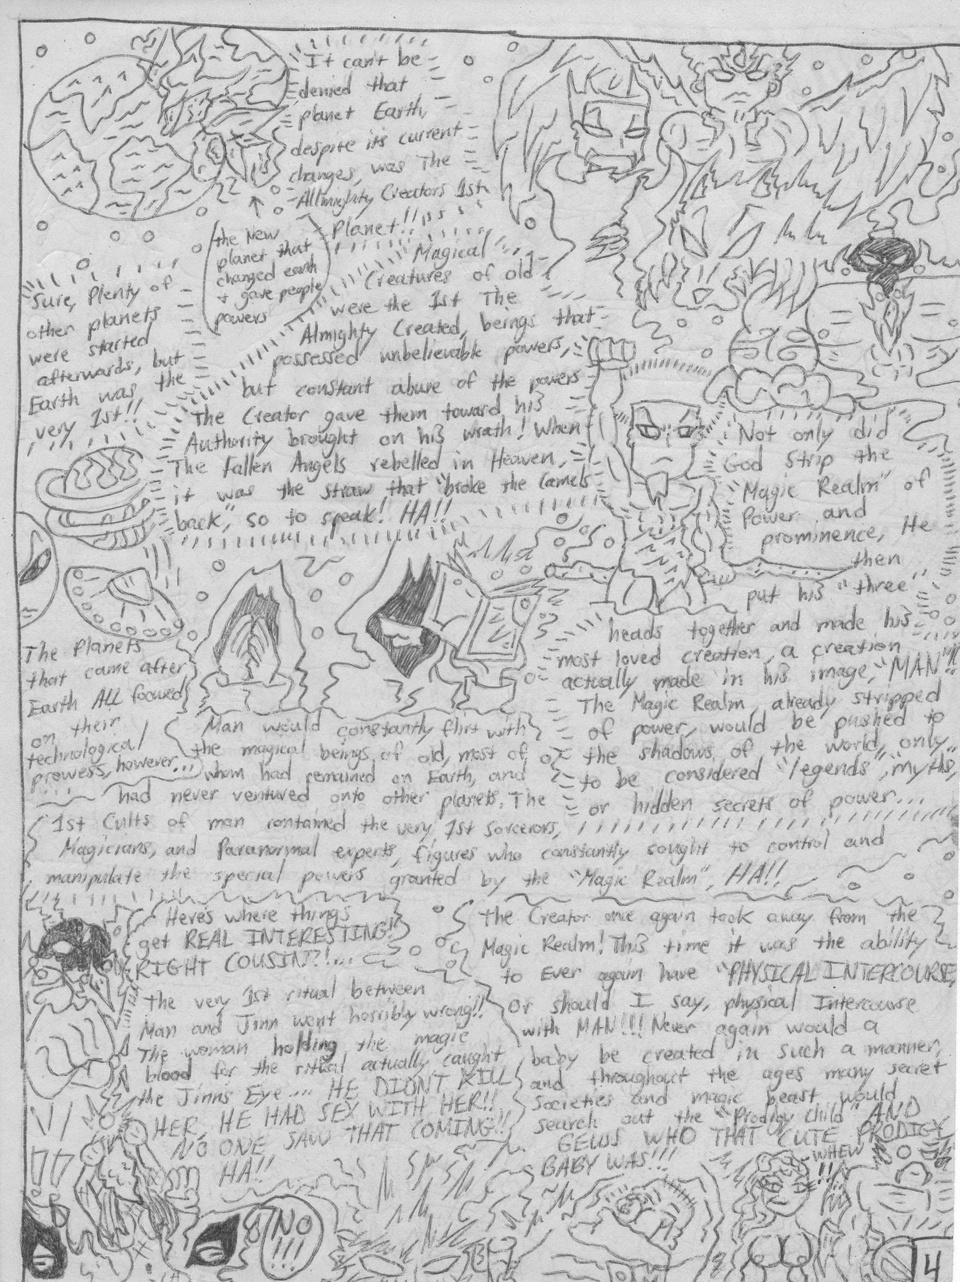 It can't be
denied that
planet Earth,
despite its current
changes, was The
Allmighty Creators 1st
Planet!!
the New
planet that
changed earth
+ gave people
powers
Sure, Plenty of
other planets
were started
afterwards, but
Earth was the
very 1st!!
Magical
Creatures of old
were the 1st The
Almighty Created, beings that
possessed unbelievable powers,
but constant abuse of the powers
The Creator gave them toward his
Authority brought on his wrath! When
The Fallen Angels rebelled in Heaven,
it was the straw that "broke the Camels
back", so to speak! HA!!
Not only did
God Strip the
"Magic Realm" of
Power and
prominence, He
then
put his "three"
heads together and made his
most loved creation, a creation
actually made in his image, "MAN"!!
The Magic Realm, already stripped
of power, would be pushed to
the shadows of the world, only
to be considered "legends", myths,
or hidden secrets of power...
The Planets
that came after
Earth ALL focused
on their
technological
prowess, however...
Man would constantly flirt with
the magical beings of old, most of
whom had remained on Earth, and
had never ventured onto other planets. The
1st Cults of man contained the very 1st Sorcerors,
Magicians, and Paranormal experts, figures who constantly sought to control and
manipulate the special powers granted by the "Magic Realm", HA!!
Here's where things
get REAL INTERESTING!!
RIGHT COUSIN?!...
The very 1st ritual between
Man and Jinn went horribly wrong!!
The woman holding the magic
blood for the ritual actually caught
the Jinns Eye... HE DIDN'T KILL
HER, HE HAD SEX WITH HER!!
NO ONE SAW THAT COMING!!
HA!!
The Creator once again took away from the
Magic Realm! This time it was the ability
to Ever again have "PHYSICAL INTERCOURSE,
Or should I say, physical Intercourse
with MAN!!! Never again would a
baby be created in such a manner,
and throughout the ages many secret
Societies and magic beast would
search out the "Prodigy Child" AND
GEUSS WHO THAT CUTE PRODIGY
BABY WAS!!!
WHEW
!!
NO
!!!
14